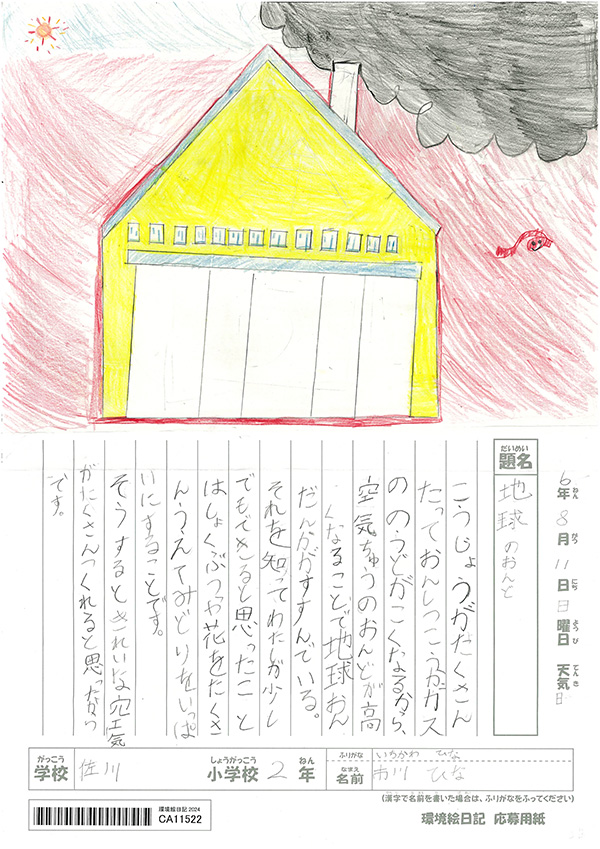 6年8月11日日曜日 天気
ねん がつ にち ようび てんき
だいめい
題名 地球のおんと
こうじょうがたくさん
たっておんしつこうかガス
ののうどがこくなるから、
空気ちゅうのおんどが高
くなることで地球おん
だんかがすすんでいる。
それを知ってわたしが少し
でもできると思ったこと
はしょくぶつや花をたくさ
んうえてみどりをいっぱ
いにすることです。
そうするときれいな空気
がたくさんつくれると思ったから
です。
がっこう しょうがっこう ねん
学校 佐川 小学校 2年
ふりがな いちかわ ひな
なまえ
名前 市川 ひな
(漢字で名前を書いた場合は、ふりがなをふってください)
環境絵日記 2024
CA11522
環境絵日記 応募用紙